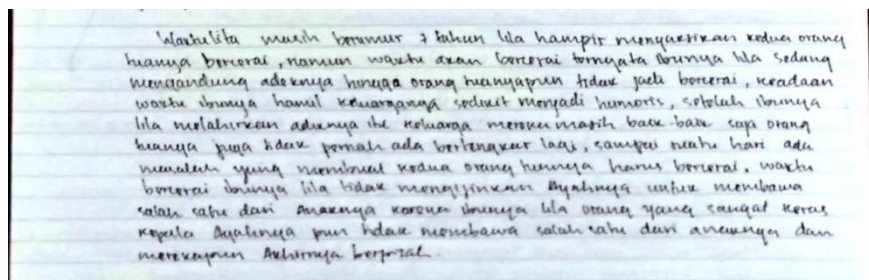 Waktu lita masih berumur 7 tahun lila hampir menyaksikan kedua orang
tuanya bercerai, namun waktu akan bercerai ternyata ibunya lila sedang
mengandung adeknya hingga orang tuanyapun tidak jadi bercerai, keadaan
waktu ibunya hamil keluarganya sedikit menjadi humoris, setelah ibunya
lila melahirkan adeknya itu keluarga mereka masih baik-baik saja orang
tuanya juga tidak pernah ada bertengkar lagi, sampai suatu hari ada
masalah yang membuat kedua orang tuanya harus bercerai, waktu
bercerai ibunya lila tidak mengijinkan Ayahnya untuk membawa
salah satu dari Anaknya karena ibunya lila orang yang sangat keras
kepala Ayahnya pun tidak membawa salah satu dari anaknya dan
merekapun Akhirnya berpisah.